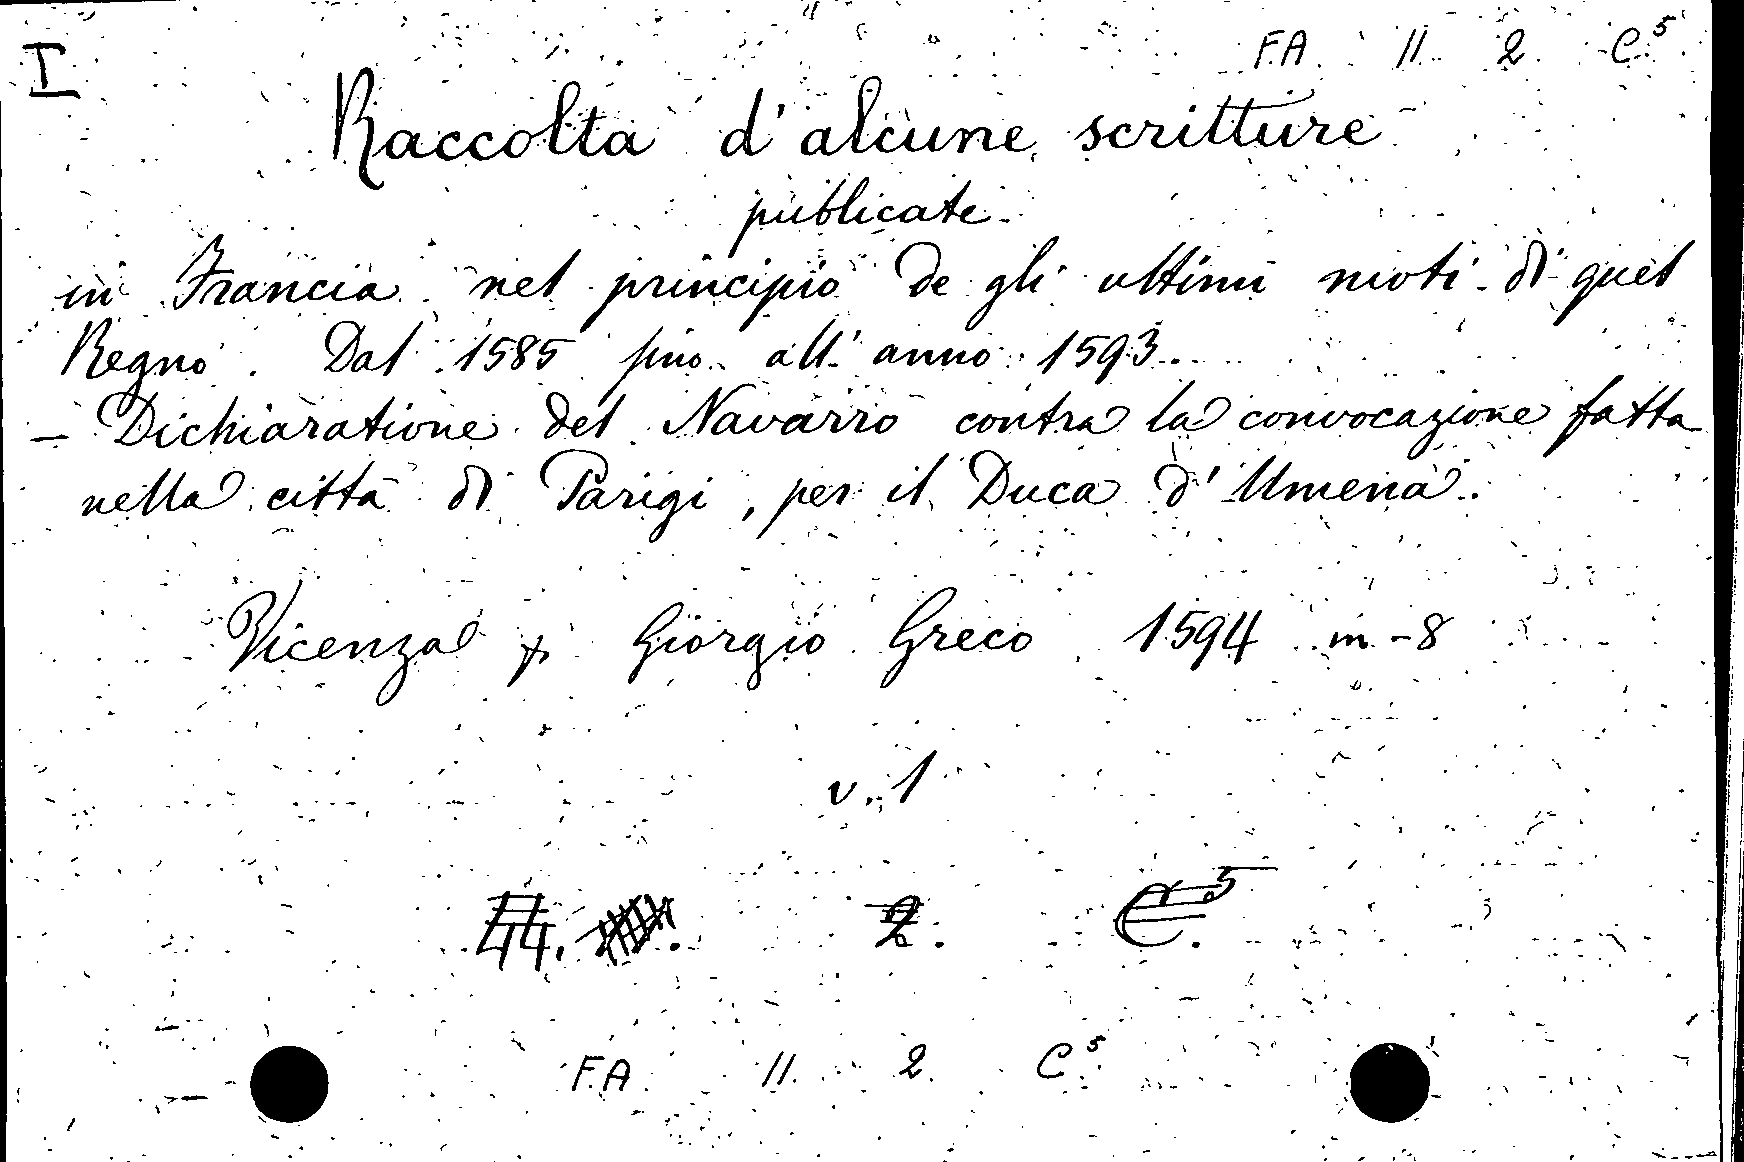 I
F.A. 11. 2. C⁵.
Raccolta d'alcune scritture
publicate
in Francia nel principio de gli ultimi moti di quel
Regno. Dal 1585 fino all'anno 1593.
- Dichiaratione del Navarro contra la convocazione fatta
nella città di Parigi, per il Duca d'Umena.
Vicenza Giorgio Greco 1594 in-8
v. 1
44. 2. C⁵.
F.A. 11. 2. C⁵.